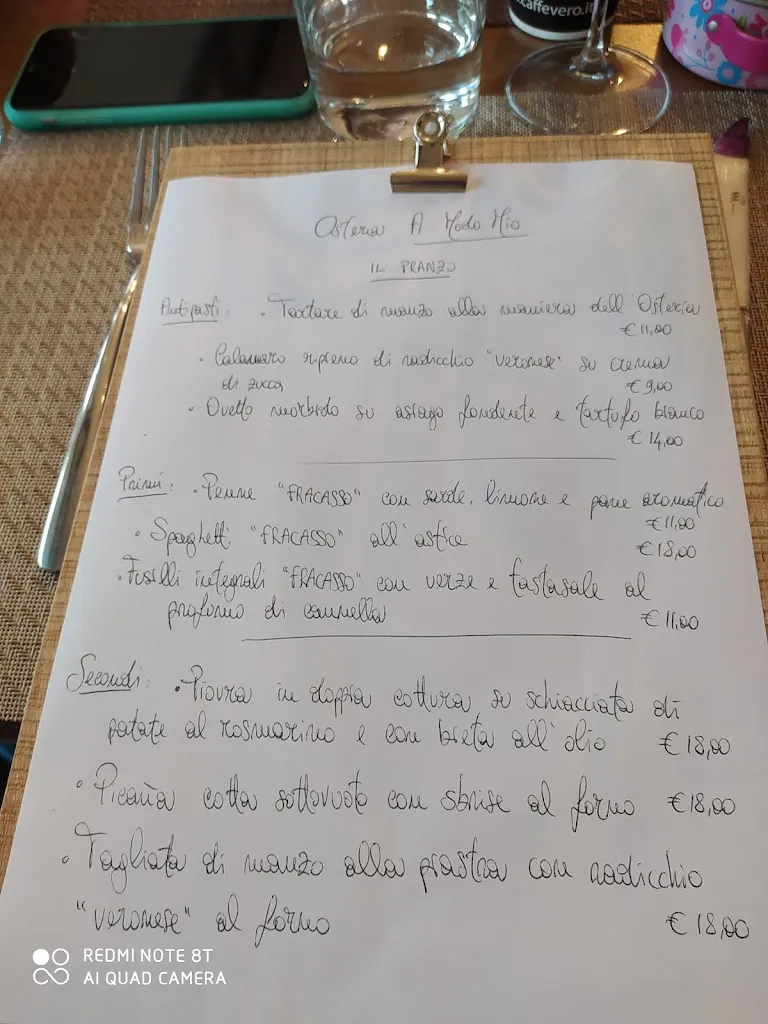 .caffevero.it
Osteria A Modo Mio
IL PRANZO
Antipasti: • Tartare di manzo alla maniera dell'Osteria
€ 11,00
• Calamaro ripieno di radicchio "veronese" su crema
di zucca € 9,00
• Ovetto morbido su asiago fondente e tartufo bianco
€ 14,00
Primi: • Penne "FRACASSO" con sarde, limone e pane aromatico
€ 11,00
• Spaghetti "FRACASSO" all'astice € 18,00
• Fusilli integrali "FRACASSO" con verze e tastasale al
profumo di cannella € 11,00
Secondi: • Piovra in doppia cottura su schiacciata di
patate al rosmarino e con bieta all'olio € 18,00
• Picaña cotta sottovuoto con sbrise al forno € 18,00
• Tagliata di manzo alla piastra con radicchio
"veronese" al forno € 18,00
REDMI NOTE 8T
AI QUAD CAMERA